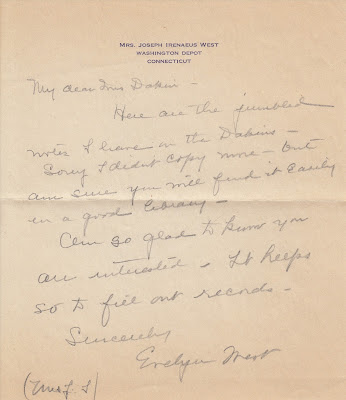 MRS. JOSEPH IRENAEUS WEST
WASHINGTON DEPOT
CONNECTICUT
My dear Mrs Dakin -
Here are the jumbled
notes I have on the Dakins -
Sorry I didnt copy more - but
am sure you will find it easily
in a good library -
Am so glad to know you
are interested. It helps
so to fill out records -
Sincerely
Evelyn West
(Mrs J. I)